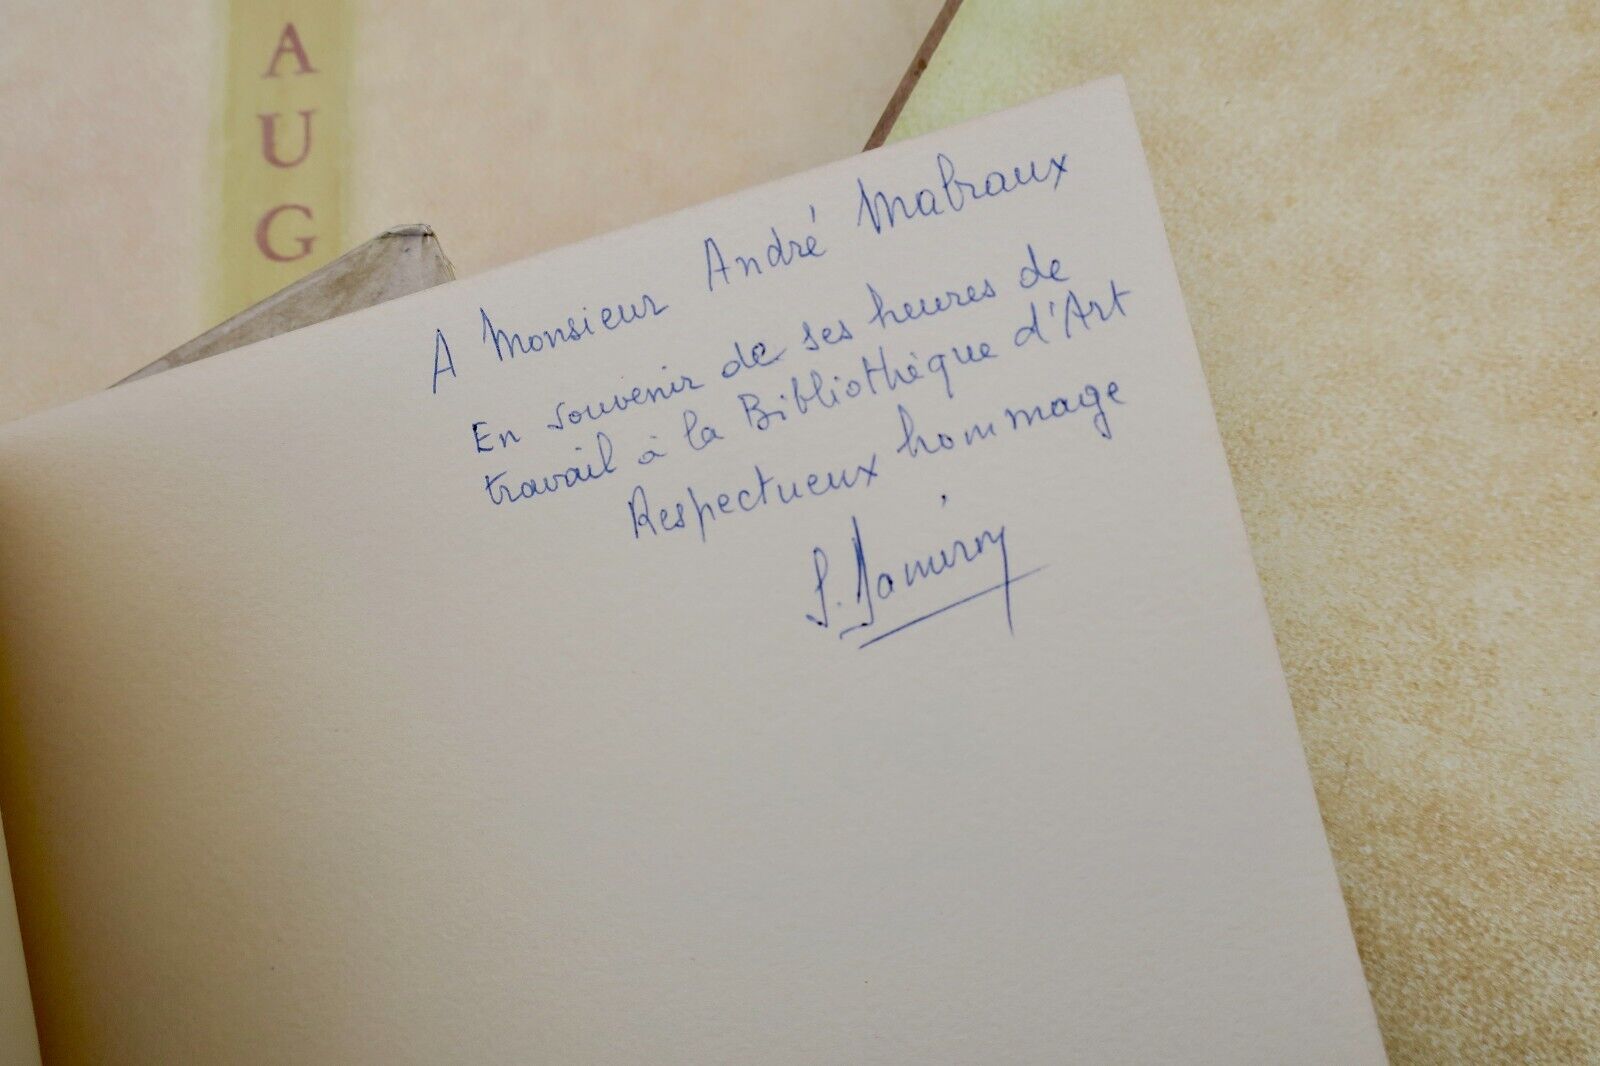 A
U
G
A Monsieur André Malraux
En souvenir de ses heures de
travail à la Bibliothèque d'Art
Respectueux hommage
S. Damiron